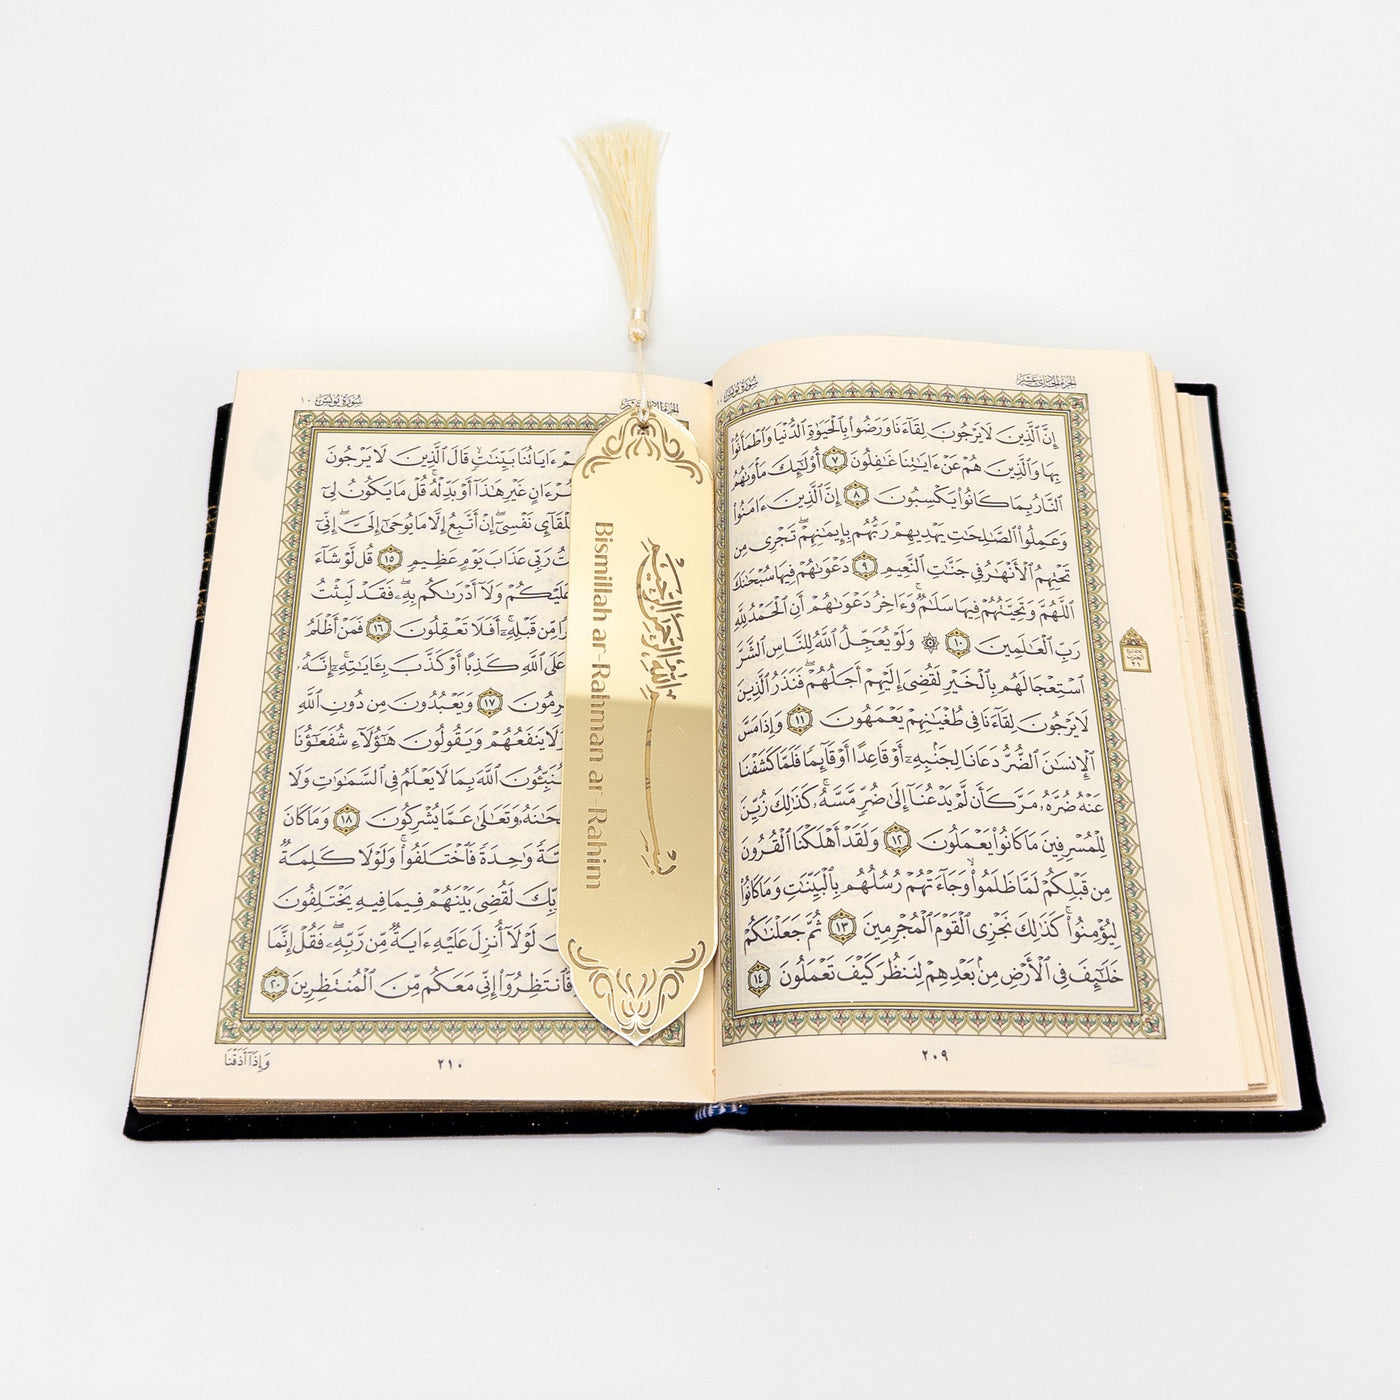 سُورَةُ يُونُسَ
الجُزءُ الحَادِي عَشَرَ
إِنَّ ٱلَّذِينَ لَا يَرْجُونَ لِقَآءَنَا وَرَضُوا۟ بِٱلْحَيَوٰةِ ٱلدُّنْيَا وَٱطْمَأَنُّوا۟
بِهَا وَٱلَّذِينَ هُمْ عَنْ ءَايَـٰتِنَا غَـٰفِلُونَ ٧ أُو۟لَـٰٓئِكَ مَأْوَىٰهُمُ
ٱلنَّارُ بِمَا كَانُوا۟ يَكْسِبُونَ ٨ إِنَّ ٱلَّذِينَ ءَامَنُوا۟
وَعَمِلُوا۟ ٱلصَّـٰلِحَـٰتِ يَهْدِيهِمْ رَبُّهُم بِإِيمَـٰنِهِمْ ۖ تَجْرِى مِن
تَحْتِهِمُ ٱلْأَنْهَـٰرُ فِى جَنَّـٰتِ ٱلنَّعِيمِ ٩ دَعْوَىٰهُمْ فِيهَا سُبْحَـٰنَكَ
ٱللَّهُمَّ وَتَحِيَّتُهُمْ فِيهَا سَلَـٰمٌ ۚ وَءَاخِرُ دَعْوَىٰهُمْ أَنِ ٱلْحَمْدُ لِلَّهِ
رَبِّ ٱلْعَـٰلَمِينَ ١٠ ۞ وَلَوْ يُعَجِّلُ ٱللَّهُ لِلنَّاسِ ٱلشَّرَّ
ٱسْتِعْجَالَهُم بِٱلْخَيْرِ لَقُضِىَ إِلَيْهِمْ أَجَلُهُمْ ۖ فَنَذَرُ ٱلَّذِينَ
لَا يَرْجُونَ لِقَآءَنَا فِى طُغْيَـٰنِهِمْ يَعْمَهُونَ ١١ وَإِذَا مَسَّ
ٱلْإِنسَـٰنَ ٱلضُّرُّ دَعَانَا لِجَنۢبِهِۦٓ أَوْ قَاعِدًا أَوْ قَآئِمًا فَلَمَّا كَشَفْنَا
عَنْهُ ضُرَّهُۥ مَرَّ كَأَن لَّمْ يَدْعُنَآ إِلَىٰ ضُرٍّ مَّسَّهُۥ ۚ كَذَٰلِكَ زُيِّنَ
لِلْمُسْرِفِينَ مَا كَانُوا۟ يَعْمَلُونَ ١٢ وَلَقَدْ أَهْلَكْنَا ٱلْقُرُونَ
مِن قَبْلِكُمْ لَمَّا ظَلَمُوا۟ ۙ وَجَآءَتْهُمْ رُسُلُهُم بِٱلْبَيِّنَـٰتِ وَمَا كَانُوا۟
لِيُؤْمِنُوا۟ ۚ كَذَٰلِكَ نَجْزِى ٱلْقَوْمَ ٱلْمُجْرِمِينَ ١٣ ثُمَّ جَعَلْنَـٰكُمْ
خَلَـٰٓئِفَ فِى ٱلْأَرْضِ مِنۢ بَعْدِهِمْ لِنَنظُرَ كَيْفَ تَعْمَلُونَ ١٤
٢٠٩
سُورَةُ يُونُسَ ١٠
ءَايَاتُنَا بَيِّنَـٰتٍ ۙ قَالَ ٱلَّذِينَ لَا يَرْجُونَ
غَيْرِ هَـٰذَآ أَوْ بَدِّلْهُ ۚ قُلْ مَا يَكُونُ لِىٓ
تِلْقَآئِ نَفْسِىٓ ۖ إِنْ أَتَّبِعُ إِلَّا مَا يُوحَىٰٓ إِلَىَّ ۖ إِنِّىٓ
رَبِّى عَذَابَ يَوْمٍ عَظِيمٍ ١٥ قُل لَّوْ شَآءَ
عَلَيْكُمْ وَلَآ أَدْرَىٰكُم بِهِۦ ۖ فَقَدْ لَبِثْتُ
مِّن قَبْلِهِۦٓ ۚ أَفَلَا تَعْقِلُونَ ١٦ فَمَنْ أَظْلَمُ
عَلَى ٱللَّهِ كَذِبًا أَوْ كَذَّبَ بِـَٔايَـٰتِهِۦٓ ۚ إِنَّهُۥ
١٧ وَيَعْبُدُونَ مِن دُونِ ٱللَّهِ
وَلَا يَنفَعُهُمْ وَيَقُولُونَ هَـٰٓؤُلَآءِ شُفَعَـٰٓؤُنَا
ٱللَّهَ بِمَا لَا يَعْلَمُ فِى ٱلسَّمَـٰوَٰتِ وَلَا
وَتَعَـٰلَىٰ عَمَّا يُشْرِكُونَ ١٨ وَمَا كَانَ
وَٰحِدَةً فَٱخْتَلَفُوا۟ ۚ وَلَوْلَا كَلِمَةٌ
لَقُضِىَ بَيْنَهُمْ فِيمَا فِيهِ يَخْتَلِفُونَ
لَوْلَآ أُنزِلَ عَلَيْهِ ءَايَةٌ مِّن رَّبِّهِۦ ۖ فَقُلْ إِنَّمَا
فَٱنتَظِرُوٓا۟ إِنِّى مَعَكُم مِّنَ ٱلْمُنتَظِرِينَ ٢٠
وَإِذَآ أَذَقْنَا
٢١٠
بِسْمِ ٱللَّهِ ٱلرَّحْمَـٰنِ ٱلرَّحِيمِ
Bismillah ar-Rahman ar-Rahim